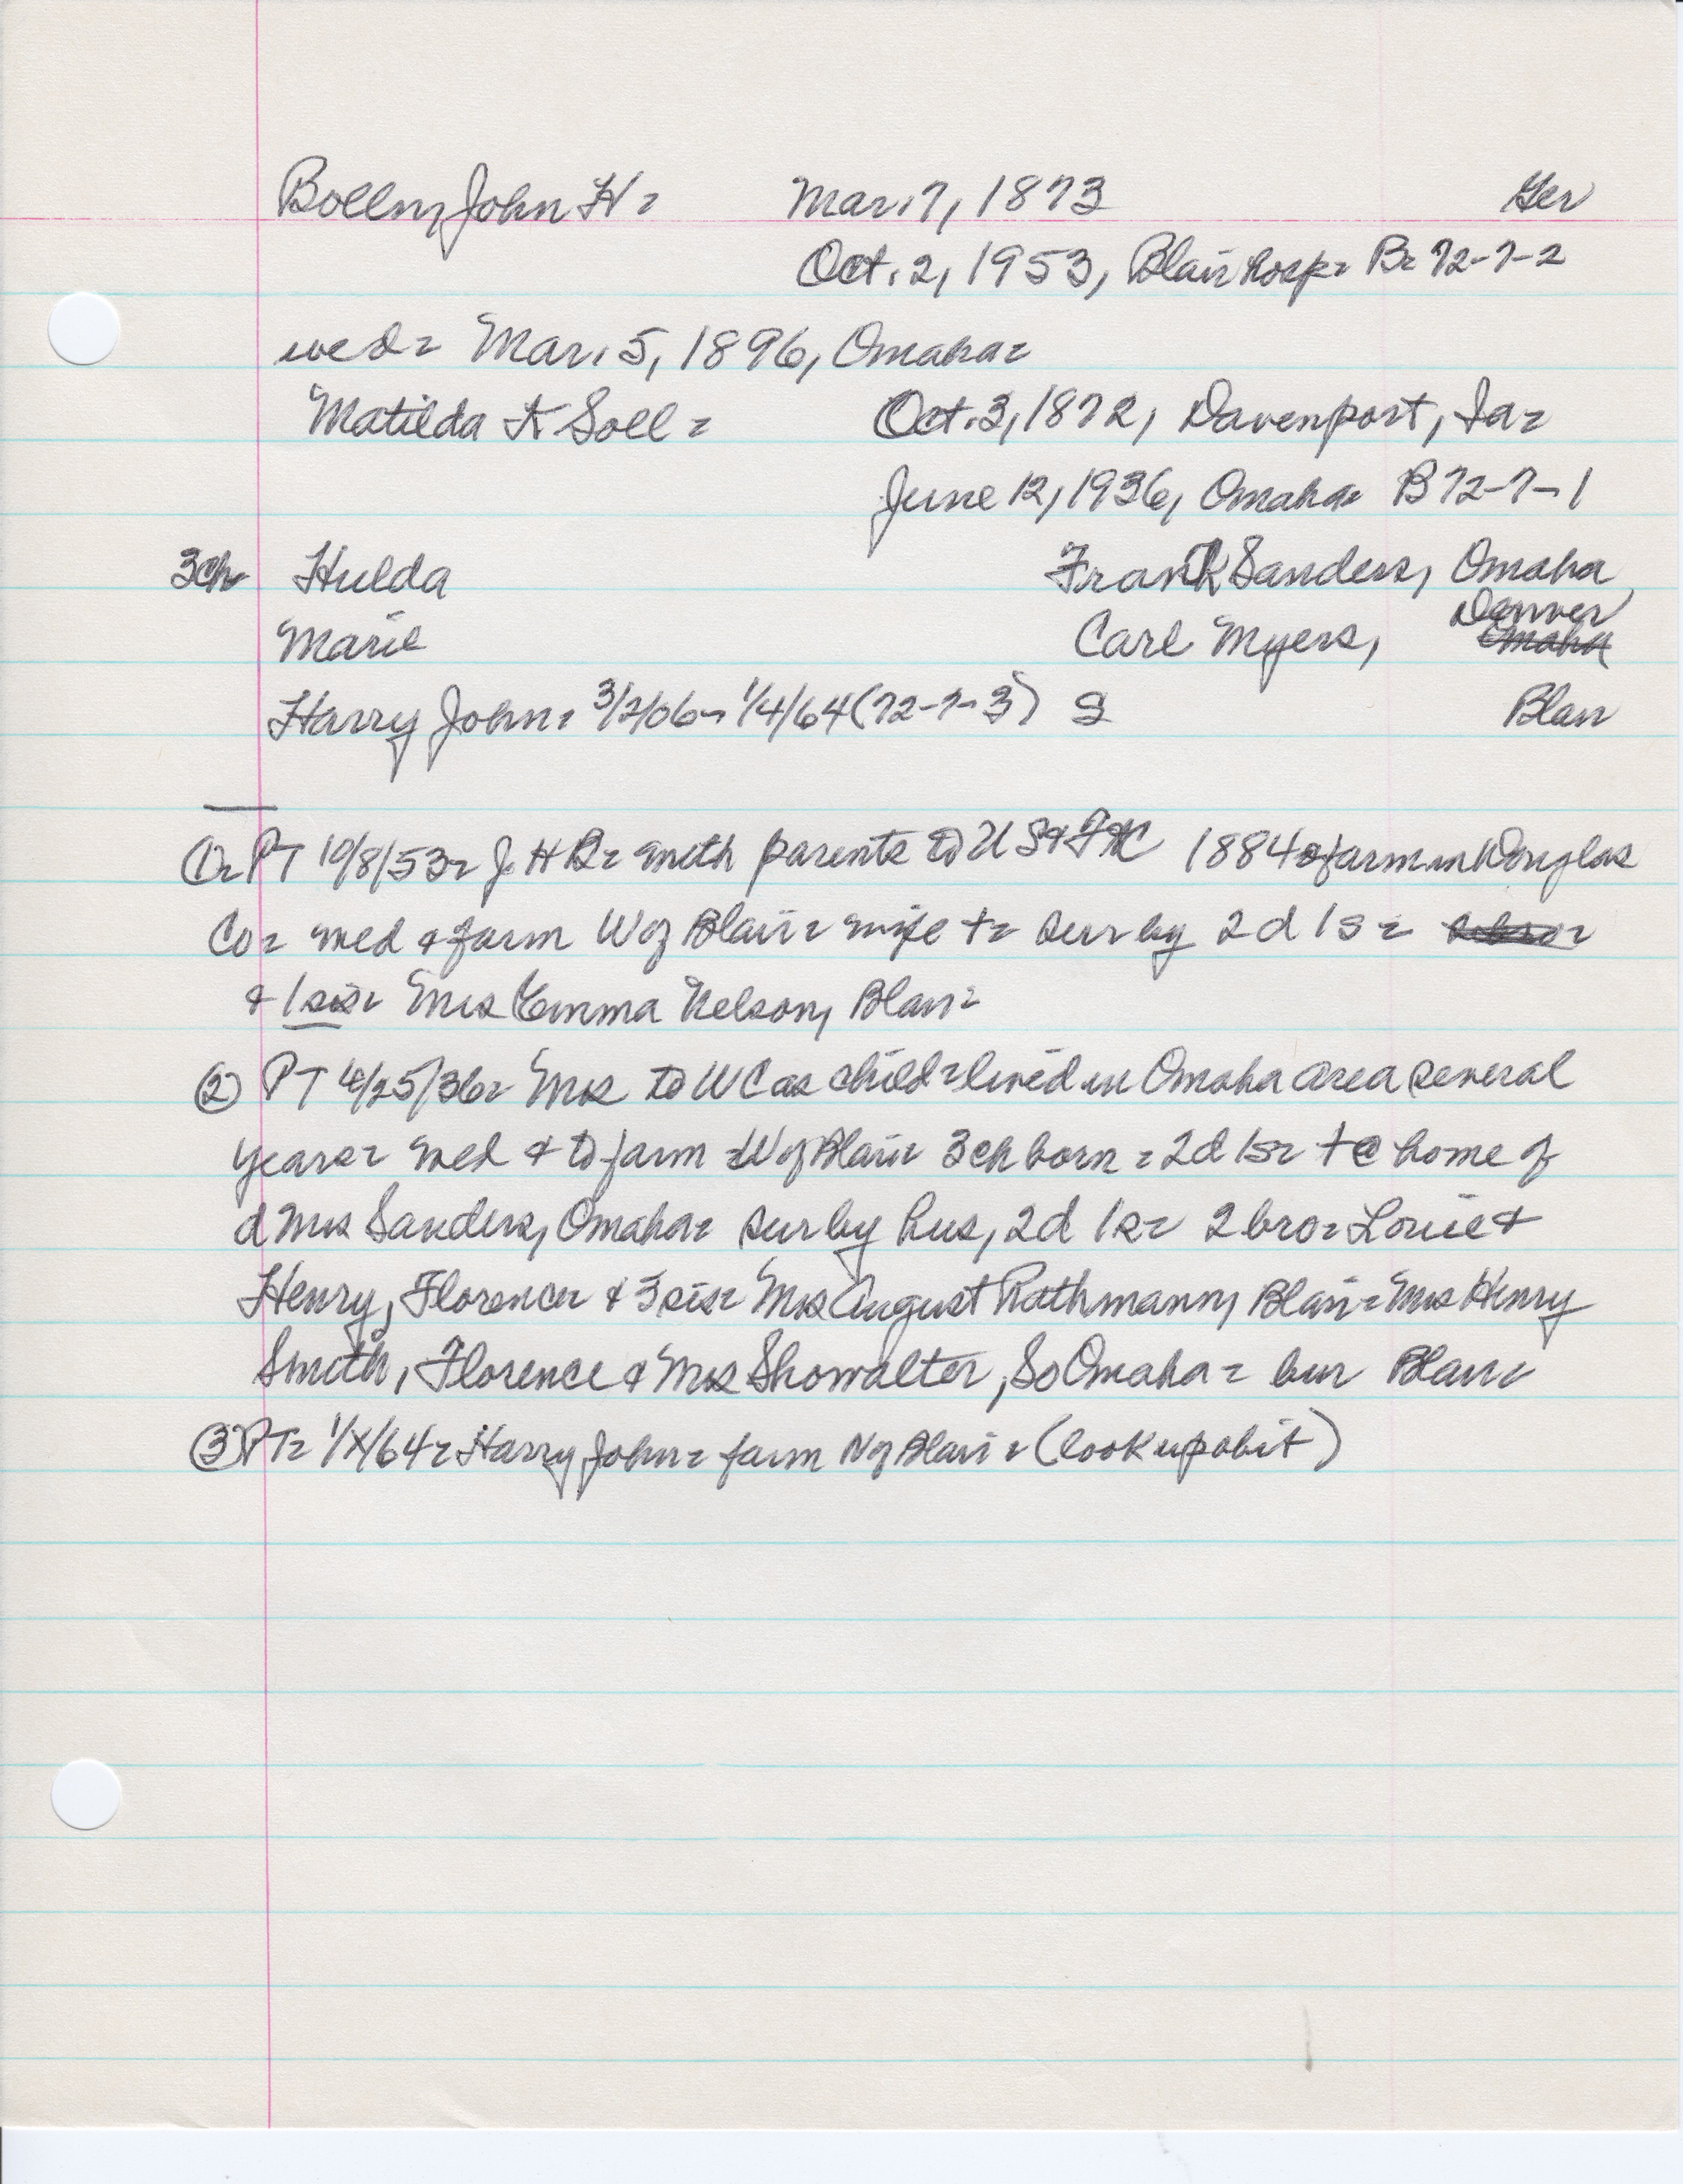 Bolln, John H= Mar. 7, 1873 Ger
Oct. 2, 1953, Blair hosp= B= 72-7-2
wed= Mar. 5, 1896, Omaha=
Matilda K Soll= Oct. 3, 1872, Davenport, Ia=
June 12, 1936, Omaha= B 72-7-1
3ch Hulda Frank Sanders, Omaha
Marie Carl Myers, Denver
Harry John= 3/2/06- 1/4/64 (72-7-3) S Blair
①= PT 10/8/53= J. H B= with parents to U S & 1884 farm in Douglas
Co= wed & farm W of Blair= wife †= sur by 2 d 1 s=
& 1 sis= Mrs Emma Nelson, Blair=
② PT 6/25/36= Mrs to WC as child= lived in Omaha area several
years= wed & to farm W of Blair 3 ch born= 2d 1s= † @ home of
d Mrs Sanders, Omaha= sur by hus, 2d 1s= 2 bro= Louie &
Henry, Florence= & 3 sis= Mrs August Rathmann, Blair= Mrs Henry
Smith, Florence & Mrs Showalter, So Omaha= bur Blair=
③ PT= 1/X/64= Harry John= farm N of Blair= (look up obit)